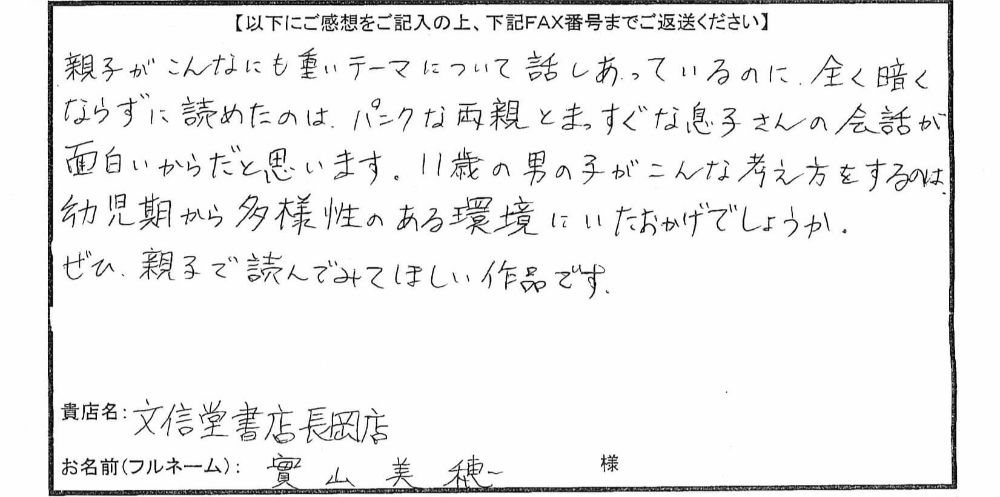 【以下にご感想をご記入の上、下記FAX番号までご返送ください】
親子がこんなにも重いテーマについて話しあっているのに、全く暗く
ならずに読めたのは、パンクな両親とまっすぐな息子さんの会話が
面白いからだと思います。11歳の男の子がこんな考え方をするのは、
幼児期から多様性のある環境にいたおかげでしょうか。
ぜひ、親子で読んでみてほしい作品です。
貴店名：文信堂書店長岡店
お名前（フルネーム）：實山美穂 様